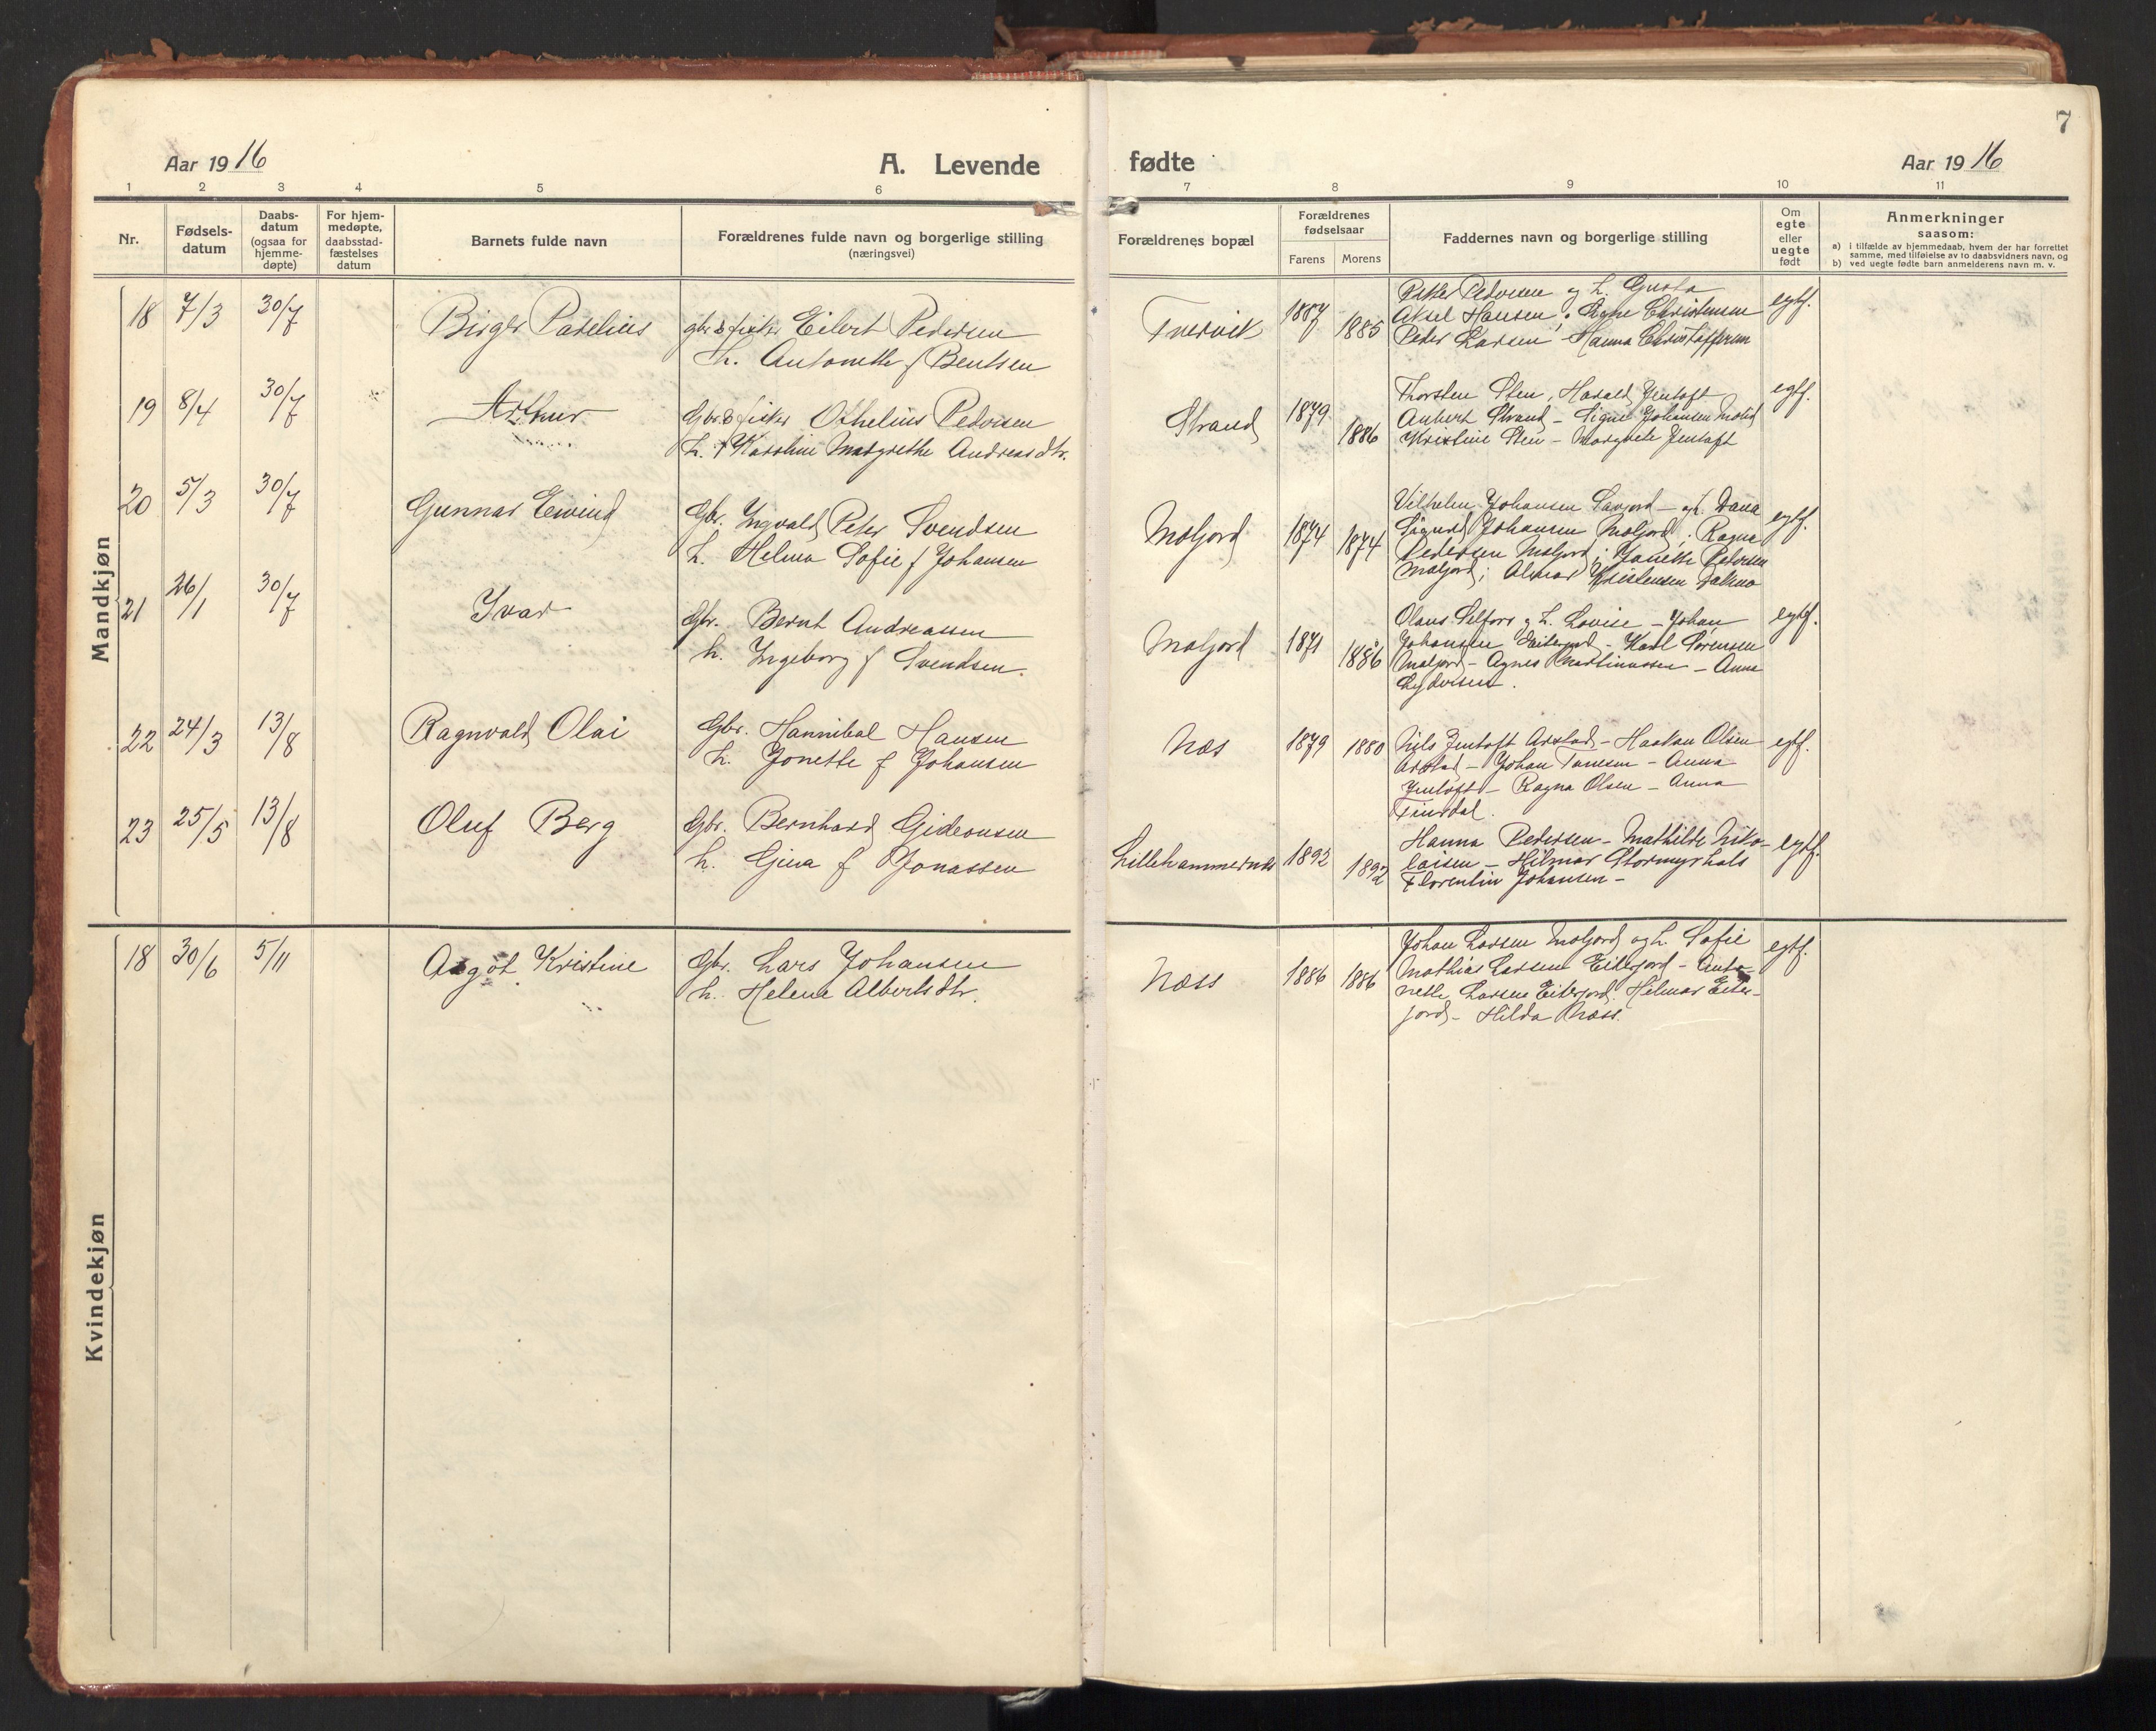 7
Aar 1916
A. Levende
fødte
Aar 1916
1 2 3 4 5 6 7 8 9 10 11
Nr.
Fødsels-
datum
Daabs-
datum
(ogsaa for
hjemme-
døpte)
For hjem-
medøpte,
daabsstad-
fæstelses
datum
Barnets fulde navn
Forældrenes fulde navn og borgerlige stilling
(næringsvei)
Forældrenes bopæl
Forældrenes
fødselsaar
Farens Morens
Faddernes navn og borgerlige stilling
Om
egte
eller
uegte
født
Anmerkninger
saasom:
a) i tilfælde av hjemmedaab, hvem der har forrettet
samme, med tilføielse av to daabsvidners navn, og
b) ved uegte fødte barn anmelderens navn m. v.
Mandkjøn
18 7/3 30/7 Birger Parelius
gbr & fisker Eilert Pedersen
h. Antonette f Bentsen
Tvervik 1887 1885
Petter Pedersen og h. Gusta
Aksel Hansen, Signe Christensen
Peder Larsen - Hanna Christoffersen
egtf.
19 8/4 30/7 Arthur
Gbr & fisker Othelius Pedersen
h. f Karoline Margrethe Andreasdtr.
Strand 1879 1886
Thorsten Sten, Harald Jentoft
Anbert Strand - Signe Johansen
Kristine Sten - Margrete Jentoft
egtf.
20 5/3 30/7 Gunnar Eivind
Gbr. Ingvald Peter Svendsen
h. Helma Sofie f Johansen
Moljord 1874 1874
Vilhelm Johansen - og h. Dana
Sigurd Johansen Moljord; Ragna
Pedersen Moljord; Janette Pedersen
Moljord; Almar Kristensen
egtf.
21 26/1 30/7 Ivar
Gbr. Bernt Andreassen
h. Ingeborg f Svendsen.
Moljord 1871 1886
Olaus Selfors og h. Lovise - Johan
Johansen Eiterjord - Karl Sørensen
Moljord - Agnes Martinussen - Anna
Sydvesen.
egtf.
22 24/3 13/8 Ragnvald Olai
Gbr. Hannibal Hansen
h. Jonette f Johansen
Næs 1879 1880
Nils Jentoft Arstad - Haakon Olsen
Arstad - Johan Tønesen - Anna
Jentoft - Ragna Olsen - Anna
Finsdal.
egtf.
23 25/5 13/8 Oluf Berg
Gbr. Bernhard Gideonsen
h. Gina f Jonassen
Lillehammernæs 1892 1892
Hanna Pedersen - Mathilde Niko-
laisen - Hilmar Stormyrhals
Florentin Johansen -
egtf.
Kvindekjøn
18 30/6 5/11 Aagot Kristine
Gbr. Lars Johansen
h. Helene Albertsdtr.
Næss 1886 1886
Johan Larsen Moljord og h. Sofie
Mathias Larsen Eiterjord - Anto-
nette Larsen Eiterjord. Hilmar Eiter-
jord - Hilda Næss.
egtf.